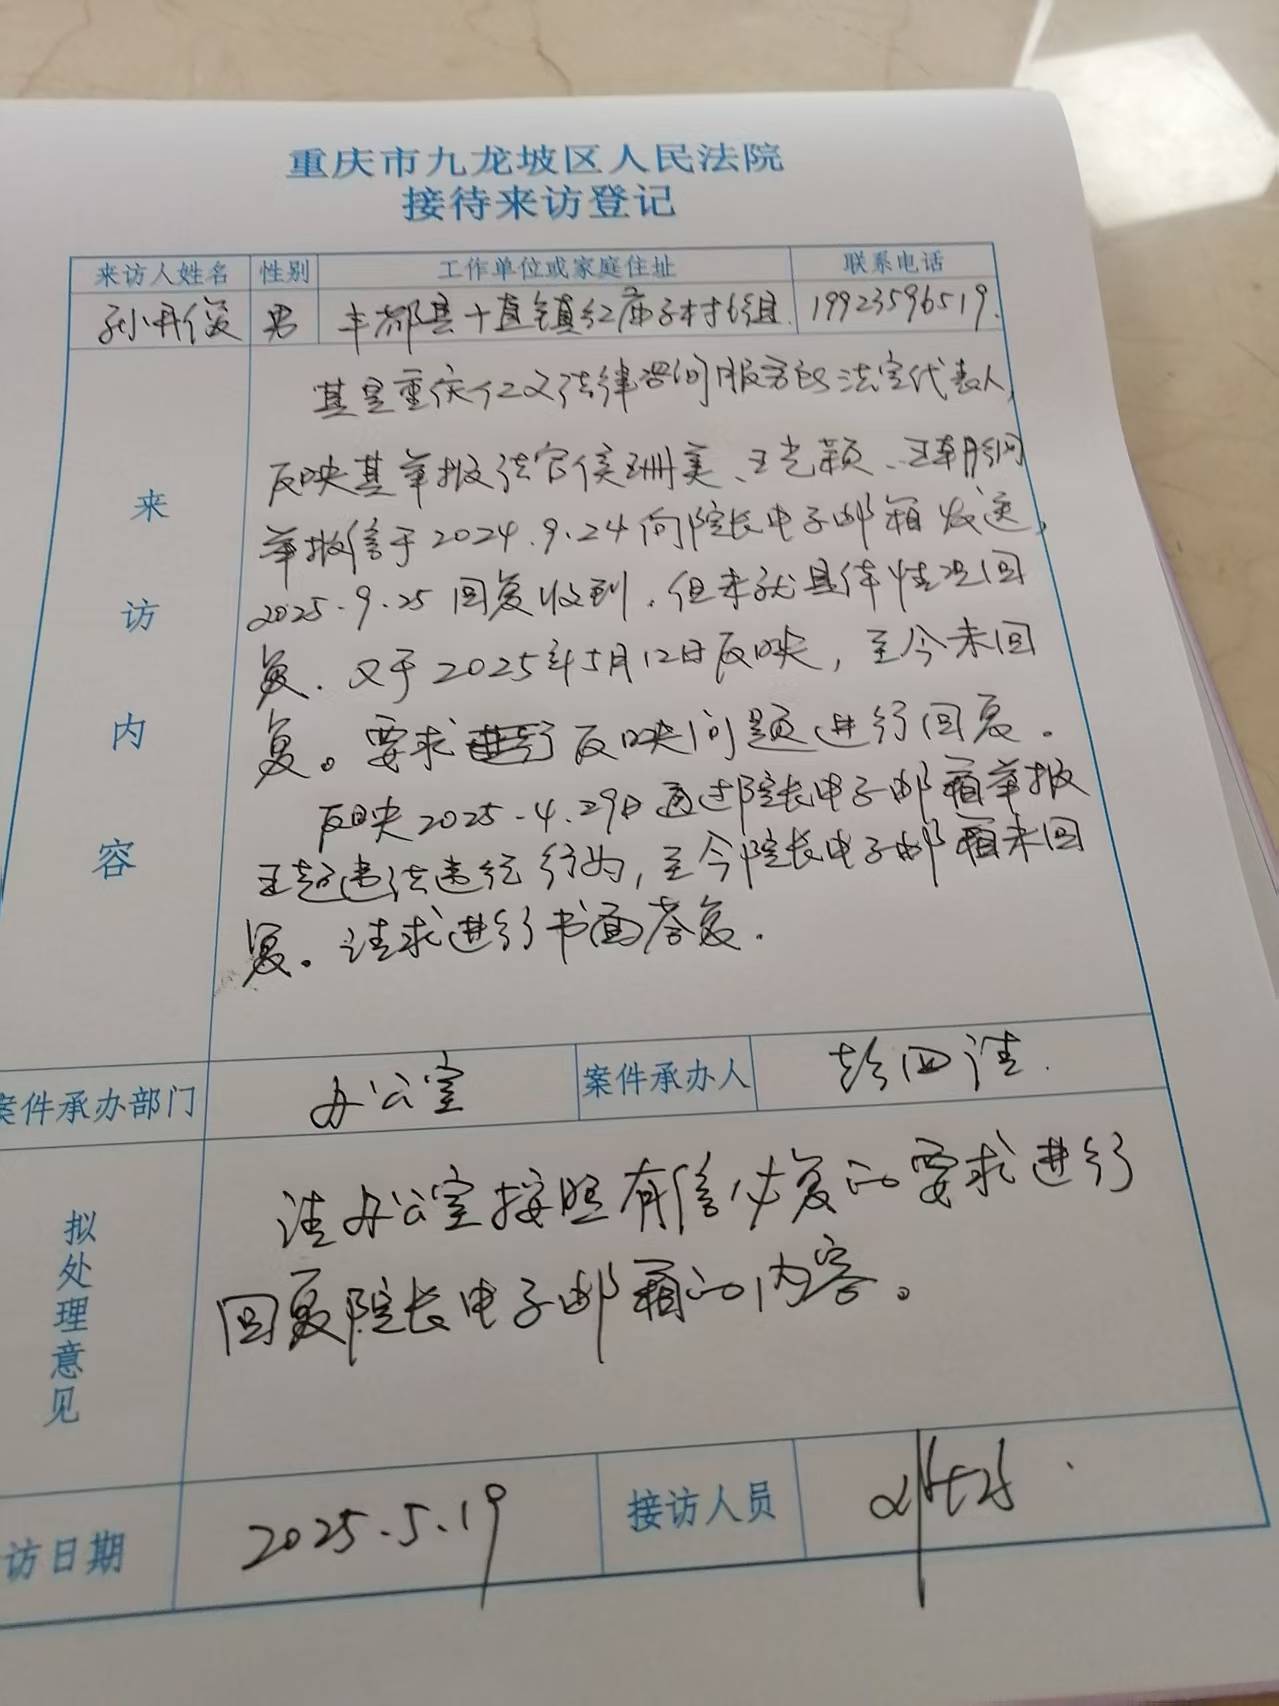 重庆市九龙坡区人民法院
接待来访登记
来访人姓名 性别 工作单位或家庭住址 联系电话
孙丹俊 男 丰都县十直镇红庙子村6组 19923596519.
来访内容
其是重庆仁文法律咨询服务的法定代表人,
反映其举报法官侯珊美、王光颖、王朝纲
举报信于2024.9.24向院长电子邮箱发送,
2025.9.25回复收到.但未就具体情况回
复.又于2025年5月12日反映,至今未回
复。要求进行反映问题进行回复.
反映2025.4.29日通过院长电子邮箱举报
王超违法违纪行为,至今院长电子邮箱未回
复。请求进行书面答复.
案件承办部门 办公室 案件承办人 彭四法.
拟处理意见
请办公室按照有信必复的要求进行
回复院长电子邮箱的内容。
访日期 2025.5.19 接访人员